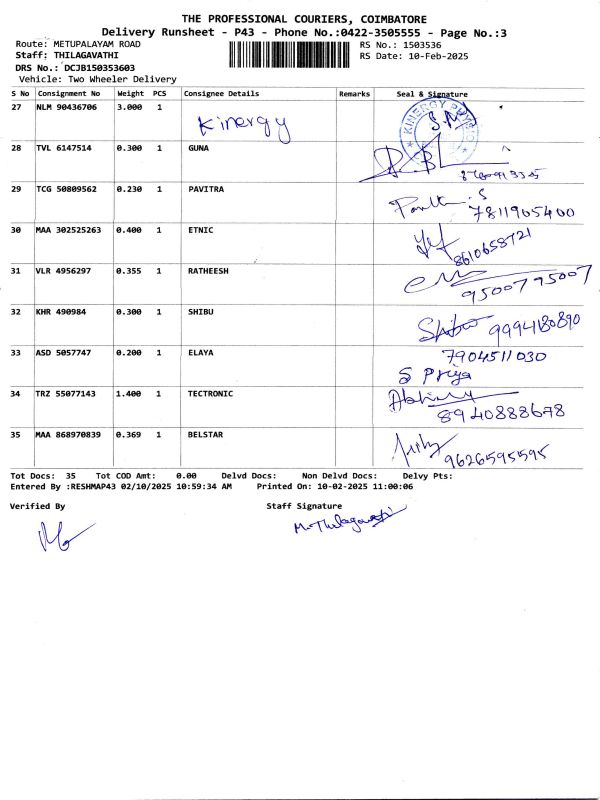 THE PROFESSIONAL COURIERS, COIMBATORE
Delivery Runsheet - P43 - Phone No.:0422-3505555 - Page No.:3
Route: METUPALAYAM ROAD RS No.: 1503536
Staff: THILAGAVATHI RS Date: 10-Feb-2025
DRS No.: DCJB150353603
Vehicle: Two Wheeler Delivery
S No Consignment No Weight PCS Consignee Details Remarks Seal & Signature
27 NLM 90436706 3.000 1 Kinergy KINERGY S.M
28 TVL 6147514 0.300 1 GUNA
29 TCG 50809562 0.230 1 PAVITRA 7811905400
30 MAA 302525263 0.400 1 ETNIC 8610658721
31 VLR 4956297 0.355 1 RATHEESH 9500795007
32 KHR 490984 0.300 1 SHIBU Shibu 9994180890
33 ASD 5057747 0.200 1 ELAYA 7904511030
S Priya
34 TRZ 55077143 1.400 1 TECTRONIC
8940888678
35 MAA 868970839 0.369 1 BELSTAR 9626595595
Tot Docs: 35 Tot COD Amt: 0.00 Delvd Docs: Non Delvd Docs: Delvy Pts:
Entered By :RESHMAP43 02/10/2025 10:59:34 AM Printed On: 10-02-2025 11:00:06
Verified By Staff Signature
M. Thilagavathi